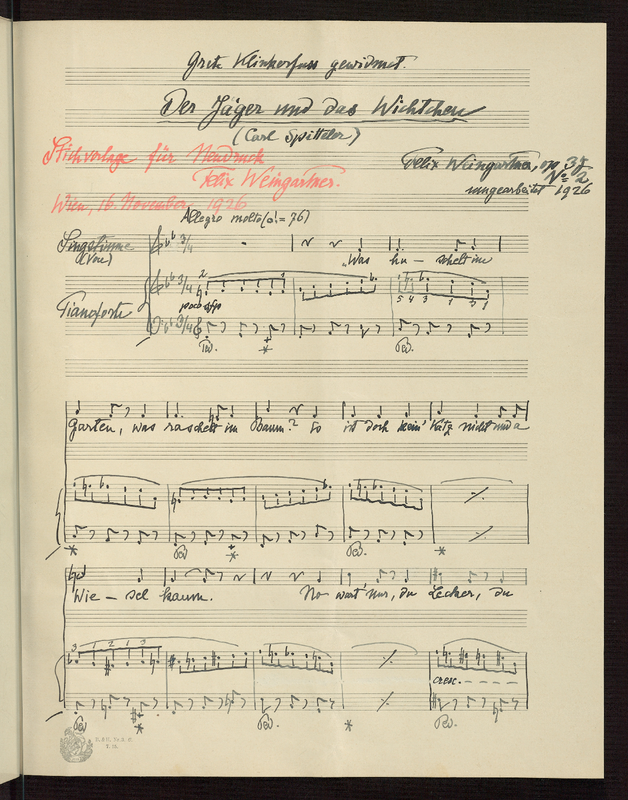 Grete Klinkerfuss gewidmet.
Der Jäger und das Wichtchen
(Carl Spitteler)
Stichvorlage für Neudruck
Felix Weingartner.
Wien, 16. November 1926
Felix Weingartner, op. 37
No 2
umgearbeitet 1926
Allegro molto
Singstimme
"Was hu - schelt im
Pianoforte
2 1
5 4 3 1 3 1
Ped. * Ped.
Garten, was raschelt im Baum? So ist doch kein' Katz nicht und a
* Ped. * Ped. *
Wie - sel kaum. No wart nur, du Lecker, du
3 1 2 1 3
cresc.
Ped. * Ped. * Ped.